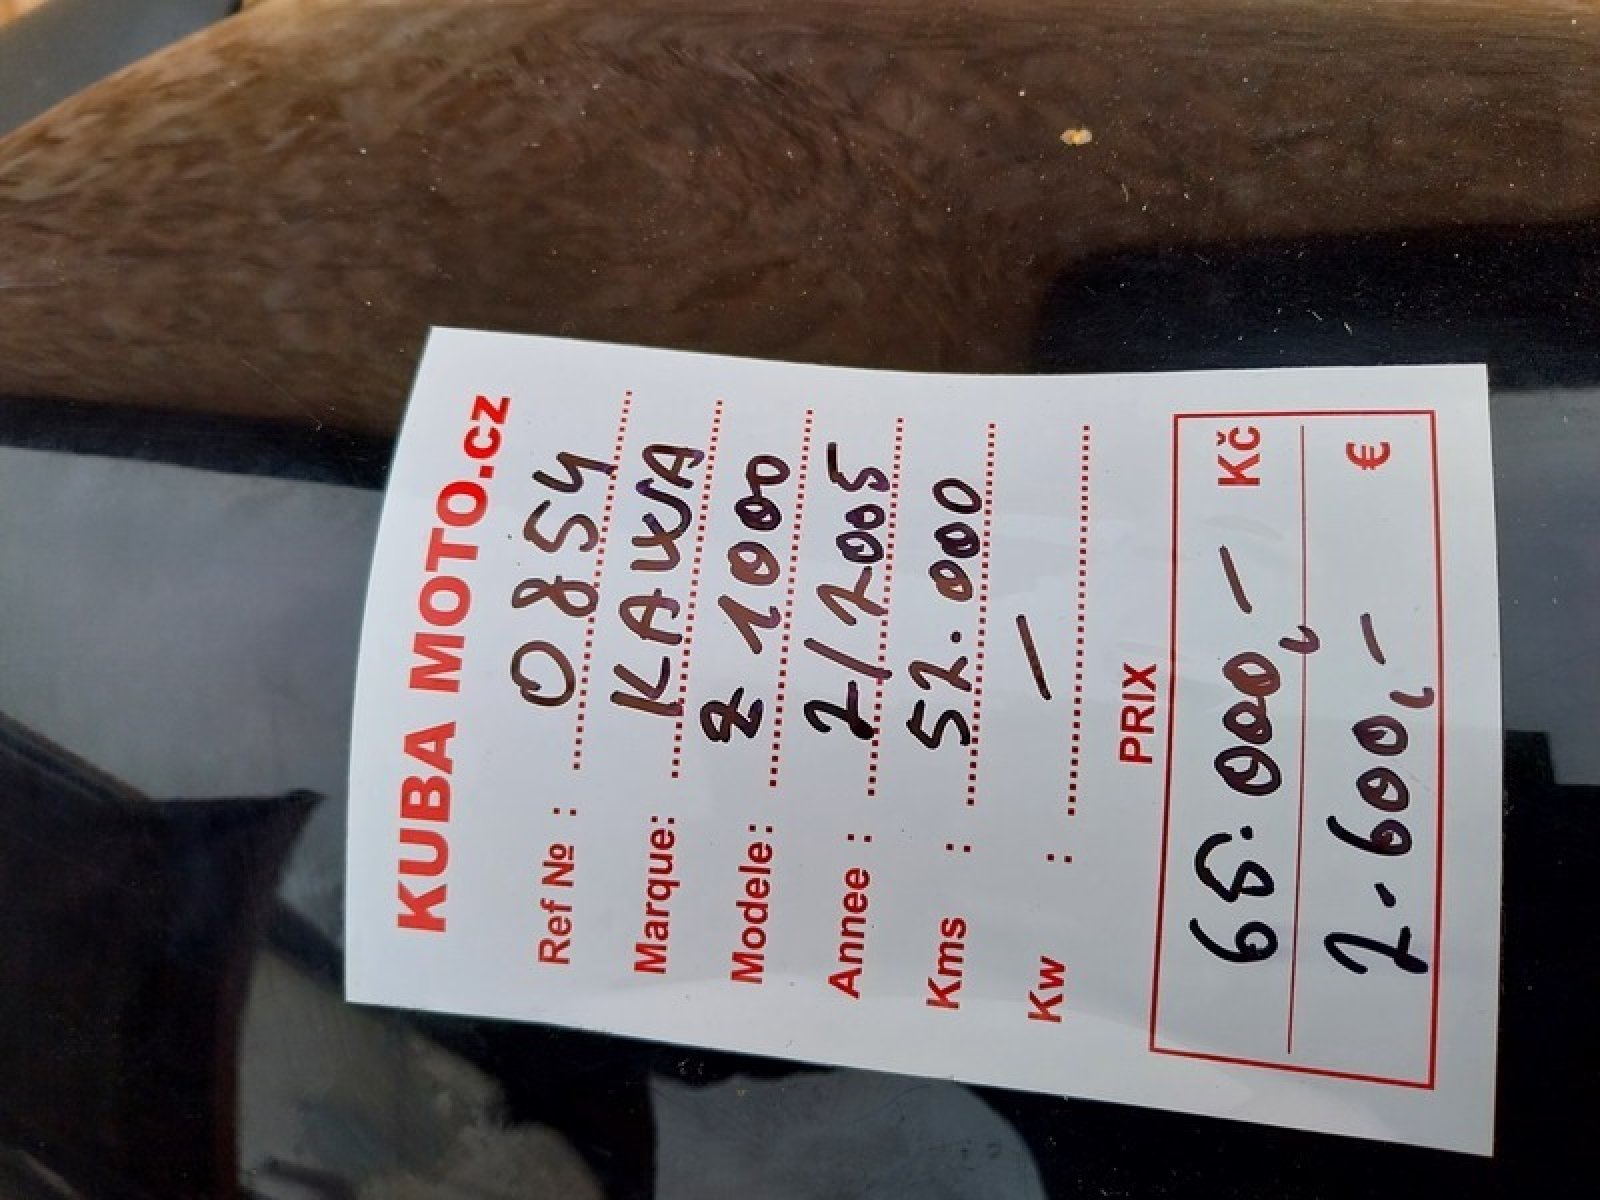 KUBA MOTO.cz
Ref № : 0854
Marque: KAWA
Modele: Z 1000
Annee : 2/2005
Kms : 52.000
Kw : —
PRIX
68.000,- Kč
2.600,- €